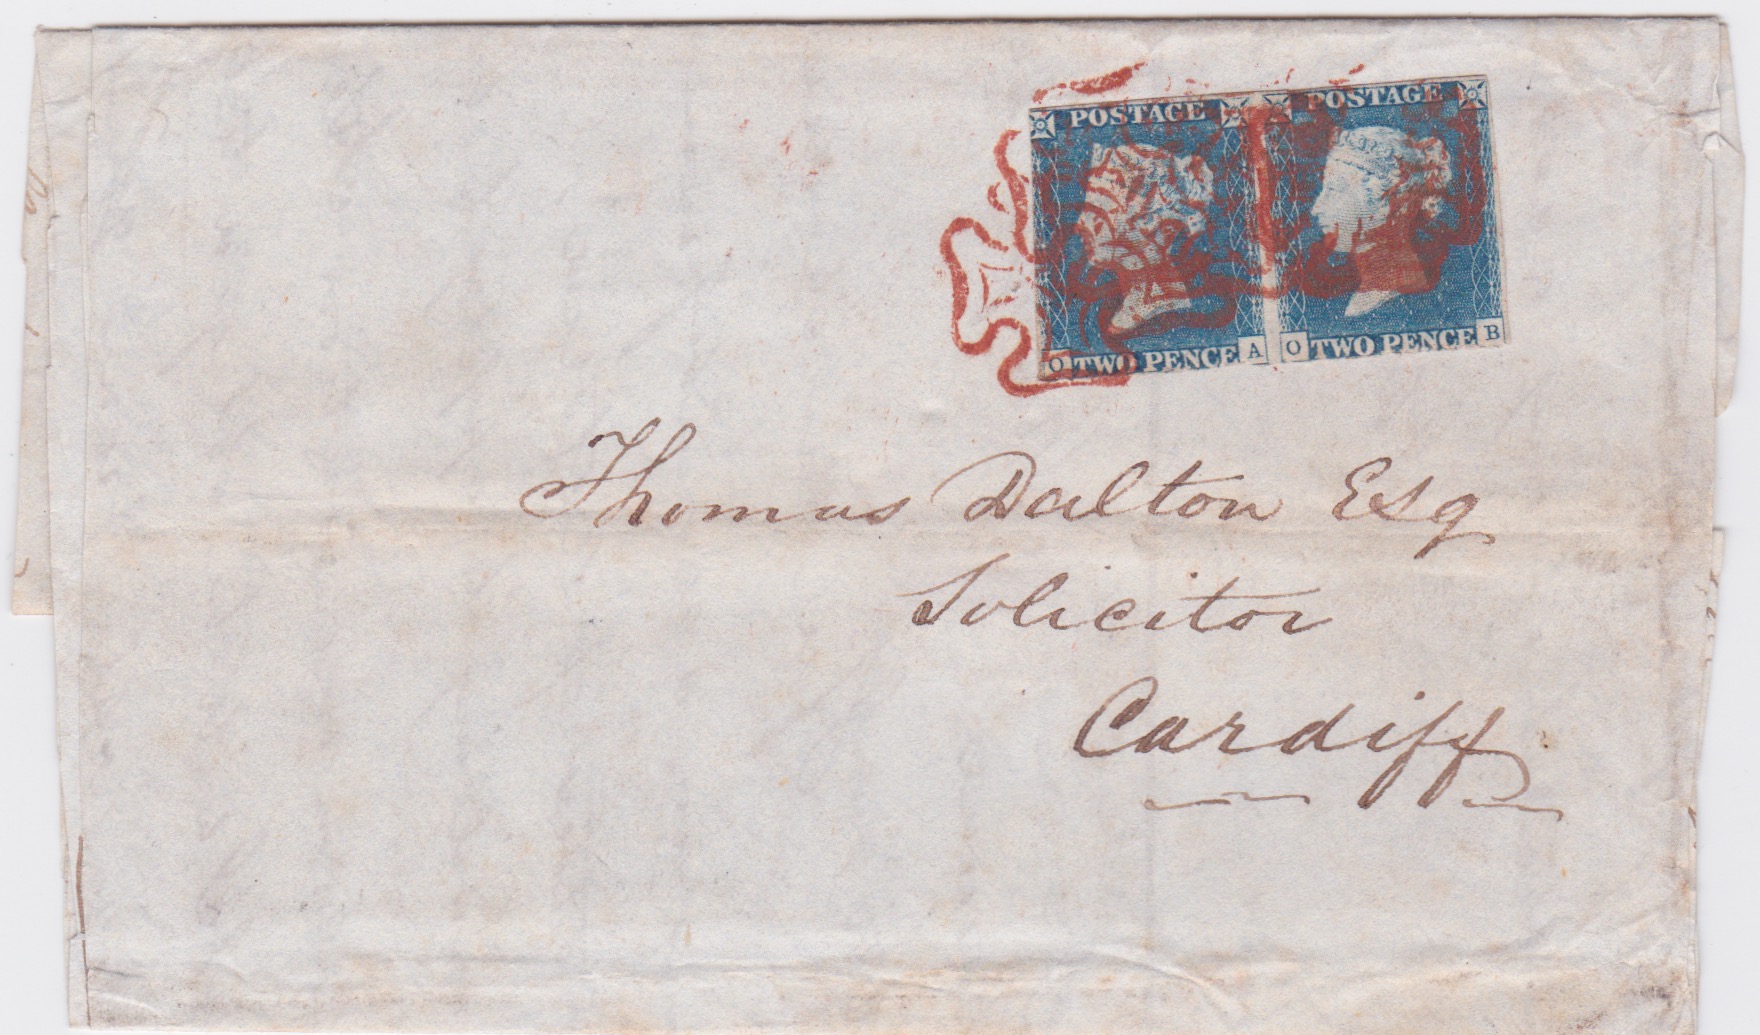 POSTAGE POSTAGE
O TWO PENCE A O TWO PENCE B
Thomas Dalton Esq
Solicitor
Cardiff